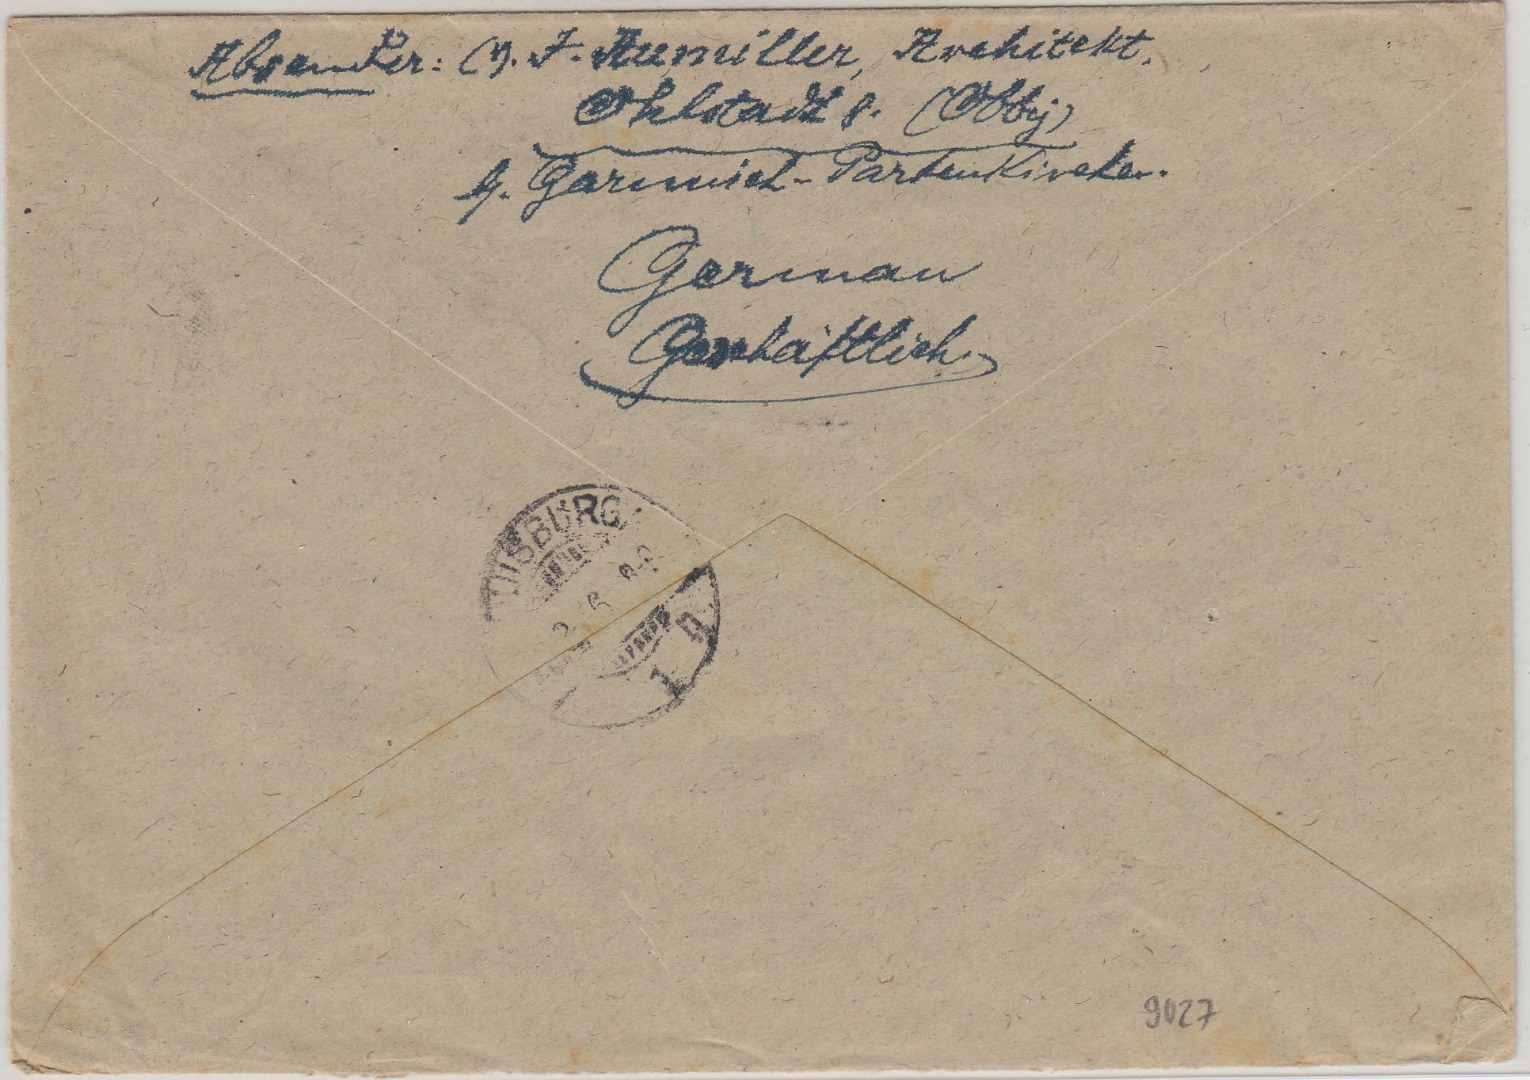 Absender: (13). J. Aumiller, Architekt.
Ohlstadt 8. (Obby)
b. Garmisch-Partenkirchen.
German
Geschäftlich.
DUISBURG
1 n
9027